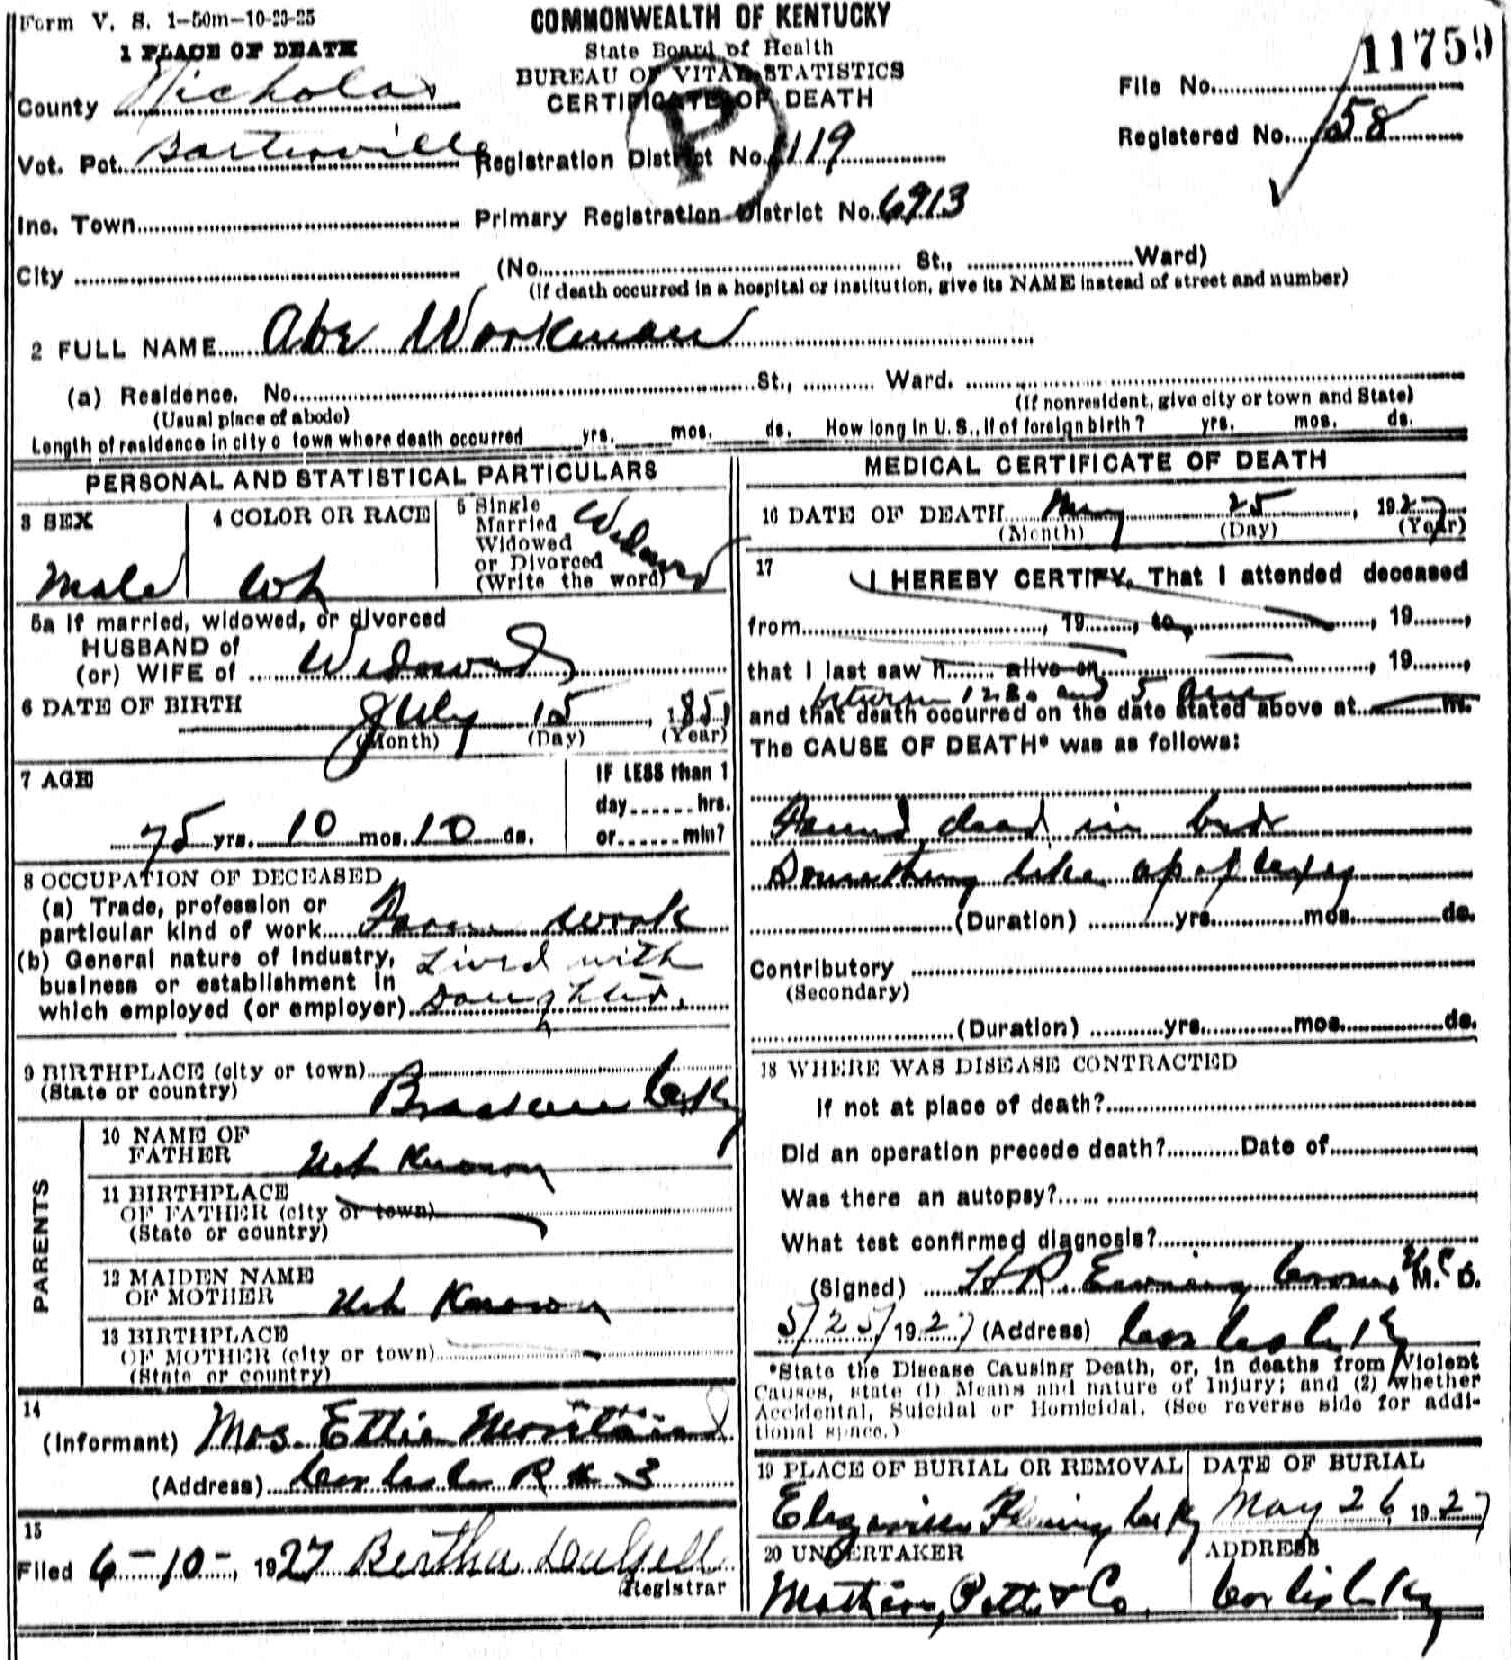 Form V. S. 1-50m-10-23-25
COMMONWEALTH OF KENTUCKY
State Board of Health
BUREAU OF VITAL STATISTICS
CERTIFICATE OF DEATH
P
1 PLACE OF DEATH
County Nicholas
File No. 11759
Vot. Pct. Bartersville Registration District No. 1119
Registered No. 58
Inc. Town Primary Registration District No. 6913
City (No. St., Ward)
(If death occurred in a hospital or institution, give its NAME instead of street and number)
2 FULL NAME Abe Workman
(a) Residence. No. St., Ward.
(Usual place of abode) (If nonresident, give city or town and State)
Length of residence in city o town where death occurred yrs. mos. ds. How long in U. S., if of foreign birth? yrs. mos. ds.
PERSONAL AND STATISTICAL PARTICULARS
3 SEX
Male
4 COLOR OR RACE
Wh
5 Single
Married
Widowed
or Divorced
(Write the word)
Widowed
5a If married, widowed, or divorced
HUSBAND of
(or) WIFE of Widowed
6 DATE OF BIRTH July 15, 1851
(Month) (Day) (Year)
7 AGE
75 yrs. 10 mos. 10 ds.
IF LESS than 1
day hrs.
or min?
8 OCCUPATION OF DECEASED
(a) Trade, profession or
particular kind of work Farm work
(b) General nature of Industry,
business or establishment in
which employed (or employer) Lived with
Daughter.
9 BIRTHPLACE (city or town)
(State or country) Bracken Co Ky
PARENTS
10 NAME OF
FATHER Not Known
11 BIRTHPLACE
OF FATHER (city or town)
(State or country)
12 MAIDEN NAME
OF MOTHER Not Known
13 BIRTHPLACE
OF MOTHER (city or town)
(State or country)
14
(Informant) Mrs. Ettie
(Address) Carlisle R # 3
15
Filed 6-10-, 1927 Bertha
Registrar
MEDICAL CERTIFICATE OF DEATH
16 DATE OF DEATH May 25, 1927
(Month) (Day) (Year)
17
I HEREBY CERTIFY, That I attended deceased
from , 19 , to , 19 ,
that I last saw h alive on , 19 ,
between 12.30 and 5 am
and that death occurred on the date stated above at m.
The CAUSE OF DEATH* was as follows:
Found dead in bed
Something like apoplexy
(Duration) yrs. mos. ds.
Contributory
(Secondary)
(Duration) yrs. mos. ds.
18 WHERE WAS DISEASE CONTRACTED
If not at place of death?
Did an operation precede death? Date of
Was there an autopsy?
What test confirmed diagnosis?
(Signed) H R Ewing Coroner N.C. M. D.
5/25/1927 (Address) Carlisle Ky
*State the Disease Causing Death, or, in deaths from Violent
Causes, state (1) Means and nature of Injury; and (2) whether
Accidental, Suicidal or Homicidal. (See reverse side for addi-
tional space.)
19 PLACE OF BURIAL OR REMOVAL
Elizaville Fleming Co Ky
DATE OF BURIAL
May 26, 1927
20 UNDERTAKER
Mathers, Potts & Co.
ADDRESS
Carlisle Ky